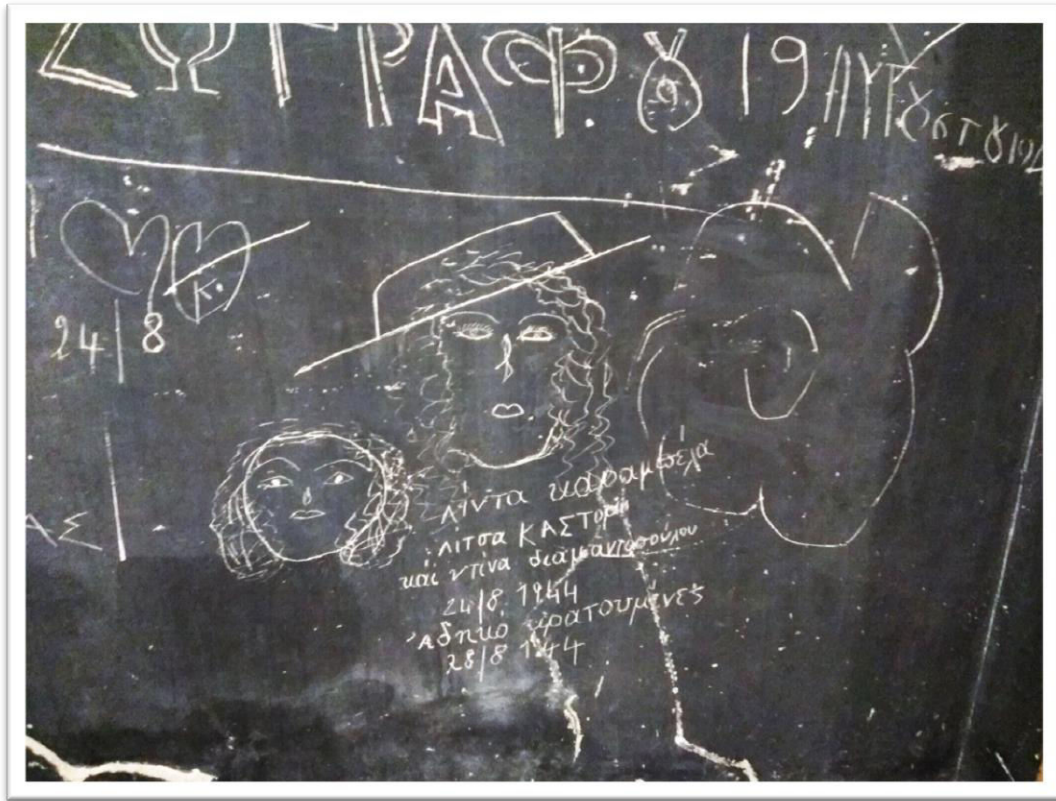 ΖΩΓΡΑΦΟΥ 19 ΑΥΓΟΥΣΤΟΥ 194
Κ.
24 | 8
ΑΣ
λίντα καραμπελα
λιτσα ΚΑΣΤορη
και ντίνα διαμαντοπούλου
24/8 1944
Αδηκο κρατουμένες
28/8 1944